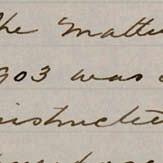 The Matte
903 was
instructe